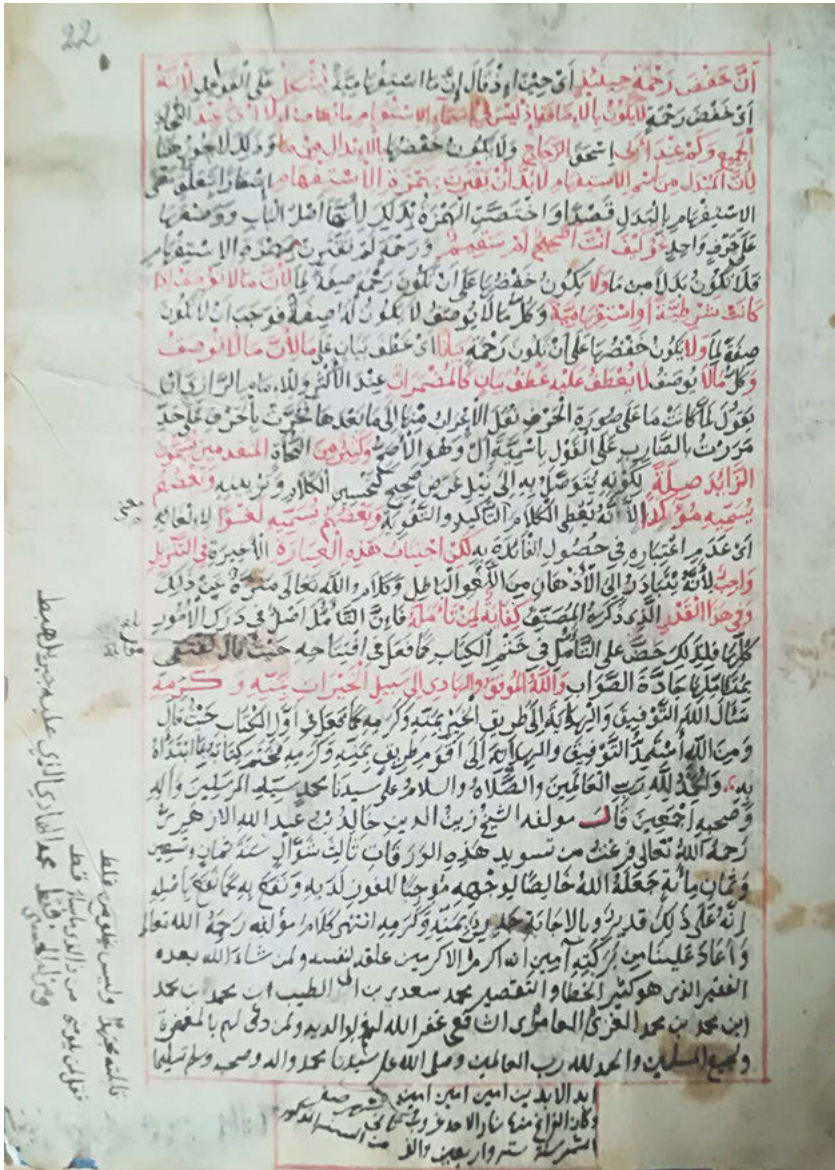 22
أنّ خفض رحمة حينئذ أي حين إذ قال إنّ ما استفهامية يشكل على القواعد لأنه
أي خفض رحمة لا يكون بالإضافة إذ ليس في أسماء الاستفهام ما يضاف إلا أيّ عند النحاة
الجميع وكم عند أبي اسحق الزجاج ولا يكون خفضها بالإبدال من ما وذلك لا يجوز هنا
لأن المبدل من اسم الاستفهام لا بدّ أن يقترن بهمزة الاستفهام إشعارا بتعلق معنى
الاستفهام بالبدل قصدا واختصّت الهمزة بذلك لأنها أصل الباب ووضعها
على حرف واحد نحو كيف أنت أصحيح أم سقيم ورحمة لم تقترن بهمزة الاستفهام
فلا تكون بدلا من ما ولا يكون خفضها على أن تكون رحمة صفة لما لأن ما لا توصف إذا
كانت شرطية أو استفهامية وكل ما لا يوصف لا يكون له صفة فوجب أن لا يكون
صفة لما ولا يكون خفضها على أن تكون رحمة بيانا أي عطف بيان على ما لأن ما لا توصف
وكل ما لا يوصف لا يعطف عليه عطف بيان كالمضمرات عند الأكثر وللإمام الرازي أن
يقول لما كانت ما على صورة الحرف نقل الإعراب منها إلى ما بعدها فجرّت بالحرف على حدّ
مررت بالضارب على القول باسمية ال وهو الأصح وكثير من النحاة المتقدمين يسمون
الزائد صلة لكونه يتوصل به إلى نيل غرض صحيح كتحسين الكلام وتزيينه وبعضهم
يسميه مؤكدا لأنه يعطي الكلام التأكيد والتقوية وبعضهم يسميه لغوا لإلغائه
أي عدم اعتباره في حصول الفائدة به لكن اجتناب هذه العبارة الأخيرة في التنزيل
واجب لأنه يتبادر إلى الأذهان من اللغو الباطل وكلام الله تعالى منزه عن ذلك
وفي هذا القدر الذي ذكره المصنف كفاية لمن تأمله فإن التأمل أصل في درك الأمور
كلها فلذلك حضّ على التأمل في ختم الكتاب كما فعل في افتتاحه حيث قال تقتفي
بمتأملها جادة الصواب والله الموفق والهادي إلى سبيل الخيرات بمنه وكرمه
سأل الله التوفيق والهداية إلى طريق الخير بمنه وكرمه كما فعل في أول الكتاب حيث قال
ومن الله أستمد التوفيق والهداية إلى أقوم طريق بمنه وكرمه فختم كتابه بما ابتدأه
به، والحمد لله رب العالمين والصلاة والسلام على سيدنا محمد سيد المرسلين وآله
وصحبه أجمعين قال مولفه الشيخ زين الدين خالد بن عبد الله الازهري
رحمه الله تعالى فرغت من تسويد هذه الورقات ثالث شوال سنة ثمان وتسعين
وثمان مائة جعله الله خالصا لوجهه موجبا للفوز لديه ونفع به كما نفع باصله
إنه على ذلك قدير وبالاجابة جدير بمنه وكرمه انتهى كلام مؤلفه رحمه الله تعالى
وأعاد علينا من بركته آمين انه اكرم الاكرمين علقه لنفسه ولمن شاء الله بعده
الفقير الذي هو كثير الخطأ والتقصير محمد سعدي بن ابي الطيب ابن محمد بن محمد
ابن محمد بن محمد الغزي العامري الشافعي غفر الله لهم ولوالديه ولمن دعى لهم بالمغفرة
ولجميع المسلمين والحمد لله رب العالمين وصلى الله على سيدنا محمد واله وصحبه وسلم تسليما
ابد الابدين امين امين امين
وكان الفراغ منها نهار الاحد
ست واربعين والف